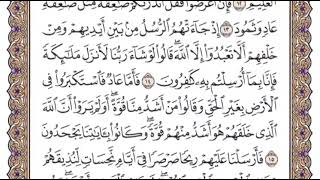 ٱلْعَلِيمِ ١٢ فَإِنْ أَعْرَضُوا۟ فَقُلْ أَنذَرْتُكُمْ صَٰعِقَةً مِّثْلَ صَٰعِقَةِ
عَادٍ وَثَمُودَ ١٣ إِذْ جَآءَتْهُمُ ٱلرُّسُلُ مِنۢ بَيْنِ أَيْدِيهِمْ وَمِنْ
خَلْفِهِمْ أَلَّا تَعْبُدُوٓا۟ إِلَّا ٱللَّهَ ۖ قَالُوا۟ لَوْ شَآءَ رَبُّنَا لَأَنزَلَ مَلَٰٓئِكَةً
فَإِنَّا بِمَآ أُرْسِلْتُم بِهِۦ كَٰفِرُونَ ١٤ فَأَمَّا عَادٌ فَٱسْتَكْبَرُوا۟ فِى
ٱلْأَرْضِ بِغَيْرِ ٱلْحَقِّ وَقَالُوا۟ مَنْ أَشَدُّ مِنَّا قُوَّةً ۖ أَوَلَمْ يَرَوْا۟ أَنَّ ٱللَّهَ
ٱلَّذِى خَلَقَهُمْ هُوَ أَشَدُّ مِنْهُمْ قُوَّةً ۖ وَكَانُوا۟ بِـَٔايَٰتِنَا يَجْحَدُونَ
١٥ فَأَرْسَلْنَا عَلَيْهِمْ رِيحًا صَرْصَرًا فِىٓ أَيَّامٍ نَّحِسَاتٍ لِّنُذِيقَهُمْ